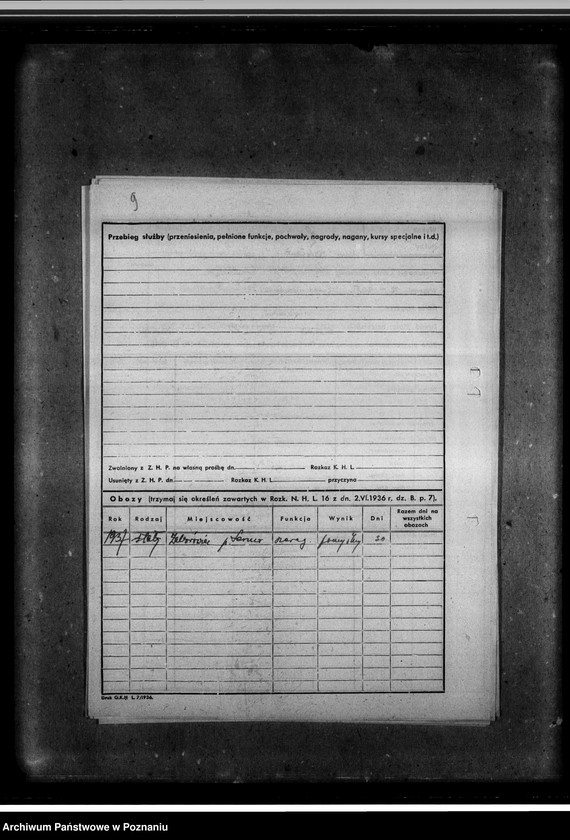 9
Przebieg służby (przeniesienia, pełnione funkcje, pochwały, nagrody, nagany, kursy specjalne i t.d.)
Zwolniony z Z. H. P. na własną prośbę dn. Rozkaz K. H. L.
Usunięty z Z. H. P. dn. Rozkaz K. H. L. przyczyna
Obozy (trzymaj się określeń zawartych w Rozk. N. H. L. 16 z dn. 2.VI.1936 r. dz. B. p. 7).
Rok Rodzaj Miejscowość Funkcja Wynik Dni Razem dni na wszystkich obozach
1937 stały 20
Druk G.K.H. L. 7/1936.
Archiwum Państwowe w Poznaniu